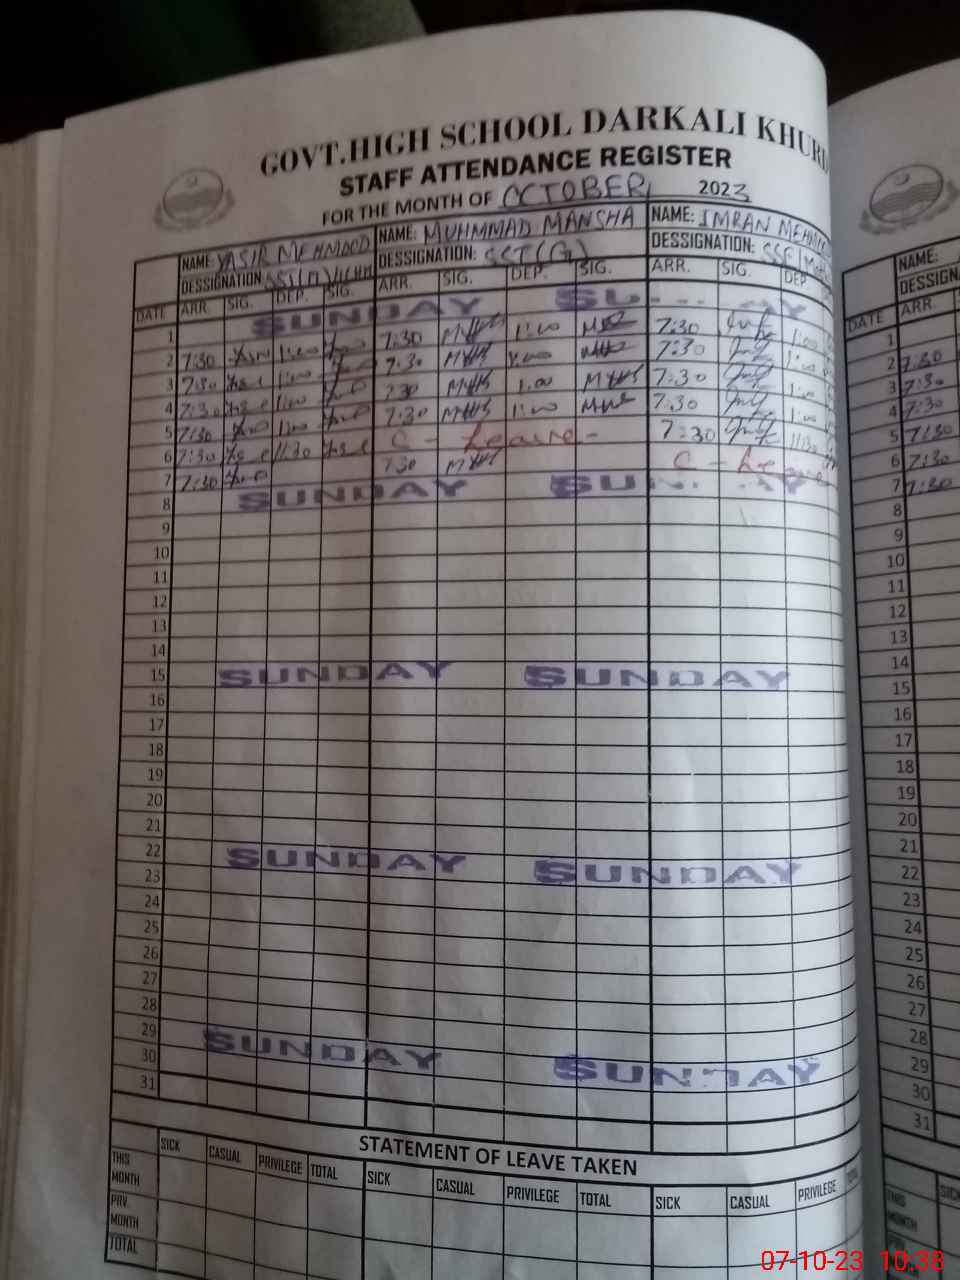 GOVT.HIGH SCHOOL DARKALI KHURD
STAFF ATTENDANCE REGISTER
FOR THE MONTH OF OCTOBER 2023
NAME: YASIR MEHMOOD NAME: MUHMMAD MANSHA NAME: IMRAN NAME:
DESSIGNATION: DESSIGNATION: SCT(G) DESSIGNATION:
DATE ARR. SIG. DEP. SIG. ARR. SIG. DEP. SIG. ARR. SIG. DEP DATE ARR.
1 SUNDAY 1
2 7:30 1:00 7:30 1:00 7:30 1:00 2 7:30
3 7:30 1:00 7:30 1:00 7:30 1:00 3 7:30
4 7:30 1:00 7:30 1:00 7:30 1:00 4 7:30
5 7:30 1:00 7:30 1:00 7:30 1:00 5 7:30
6 7:30 11:30 C - Leave - 7:30 11:30 6 7:30
7 7:30 7:30 C - Leave 7 7:30
8 SUNDAY 8
9 9
10 10
11 11
12 12
13 13
14 14
15 SUNDAY SUNDAY 15
16 16
17 17
18 18
19 19
20 20
21 21
22 SUNDAY SUNDAY 22
23 23
24 24
25 25
26 26
27 27
28 28
29 SUNDAY SUNDAY 29
30 30
31 31
STATEMENT OF LEAVE TAKEN
SICK CASUAL PRIVILEGE TOTAL SICK CASUAL PRIVILEGE TOTAL SICK CASUAL PRIVILEGE
THIS MONTH
PRV. MONTH
TOTAL
07-10-23 10:38